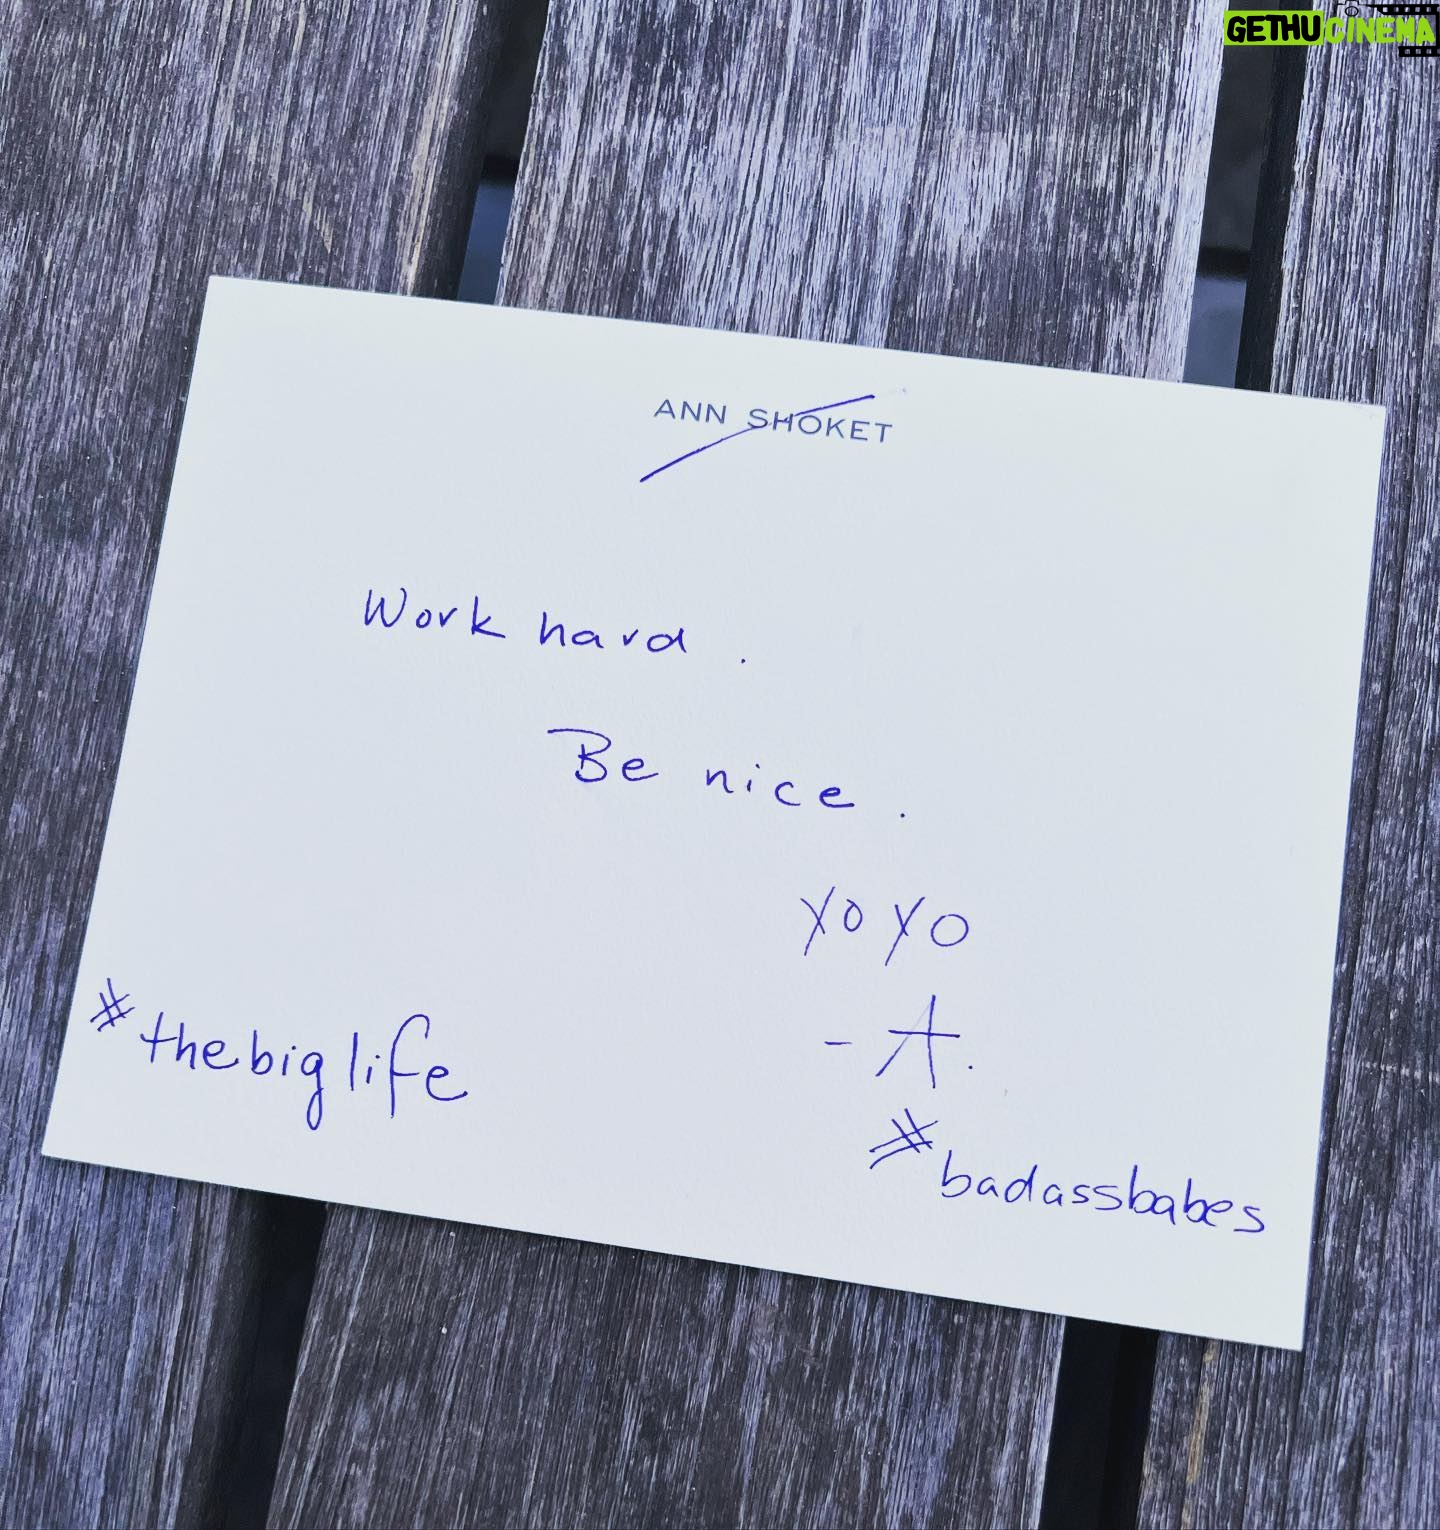 GETHUCINEMA
ANN SHOKET
Work hard.
Be nice.
xoxo
#thebiglife
-A.
#badassbabes